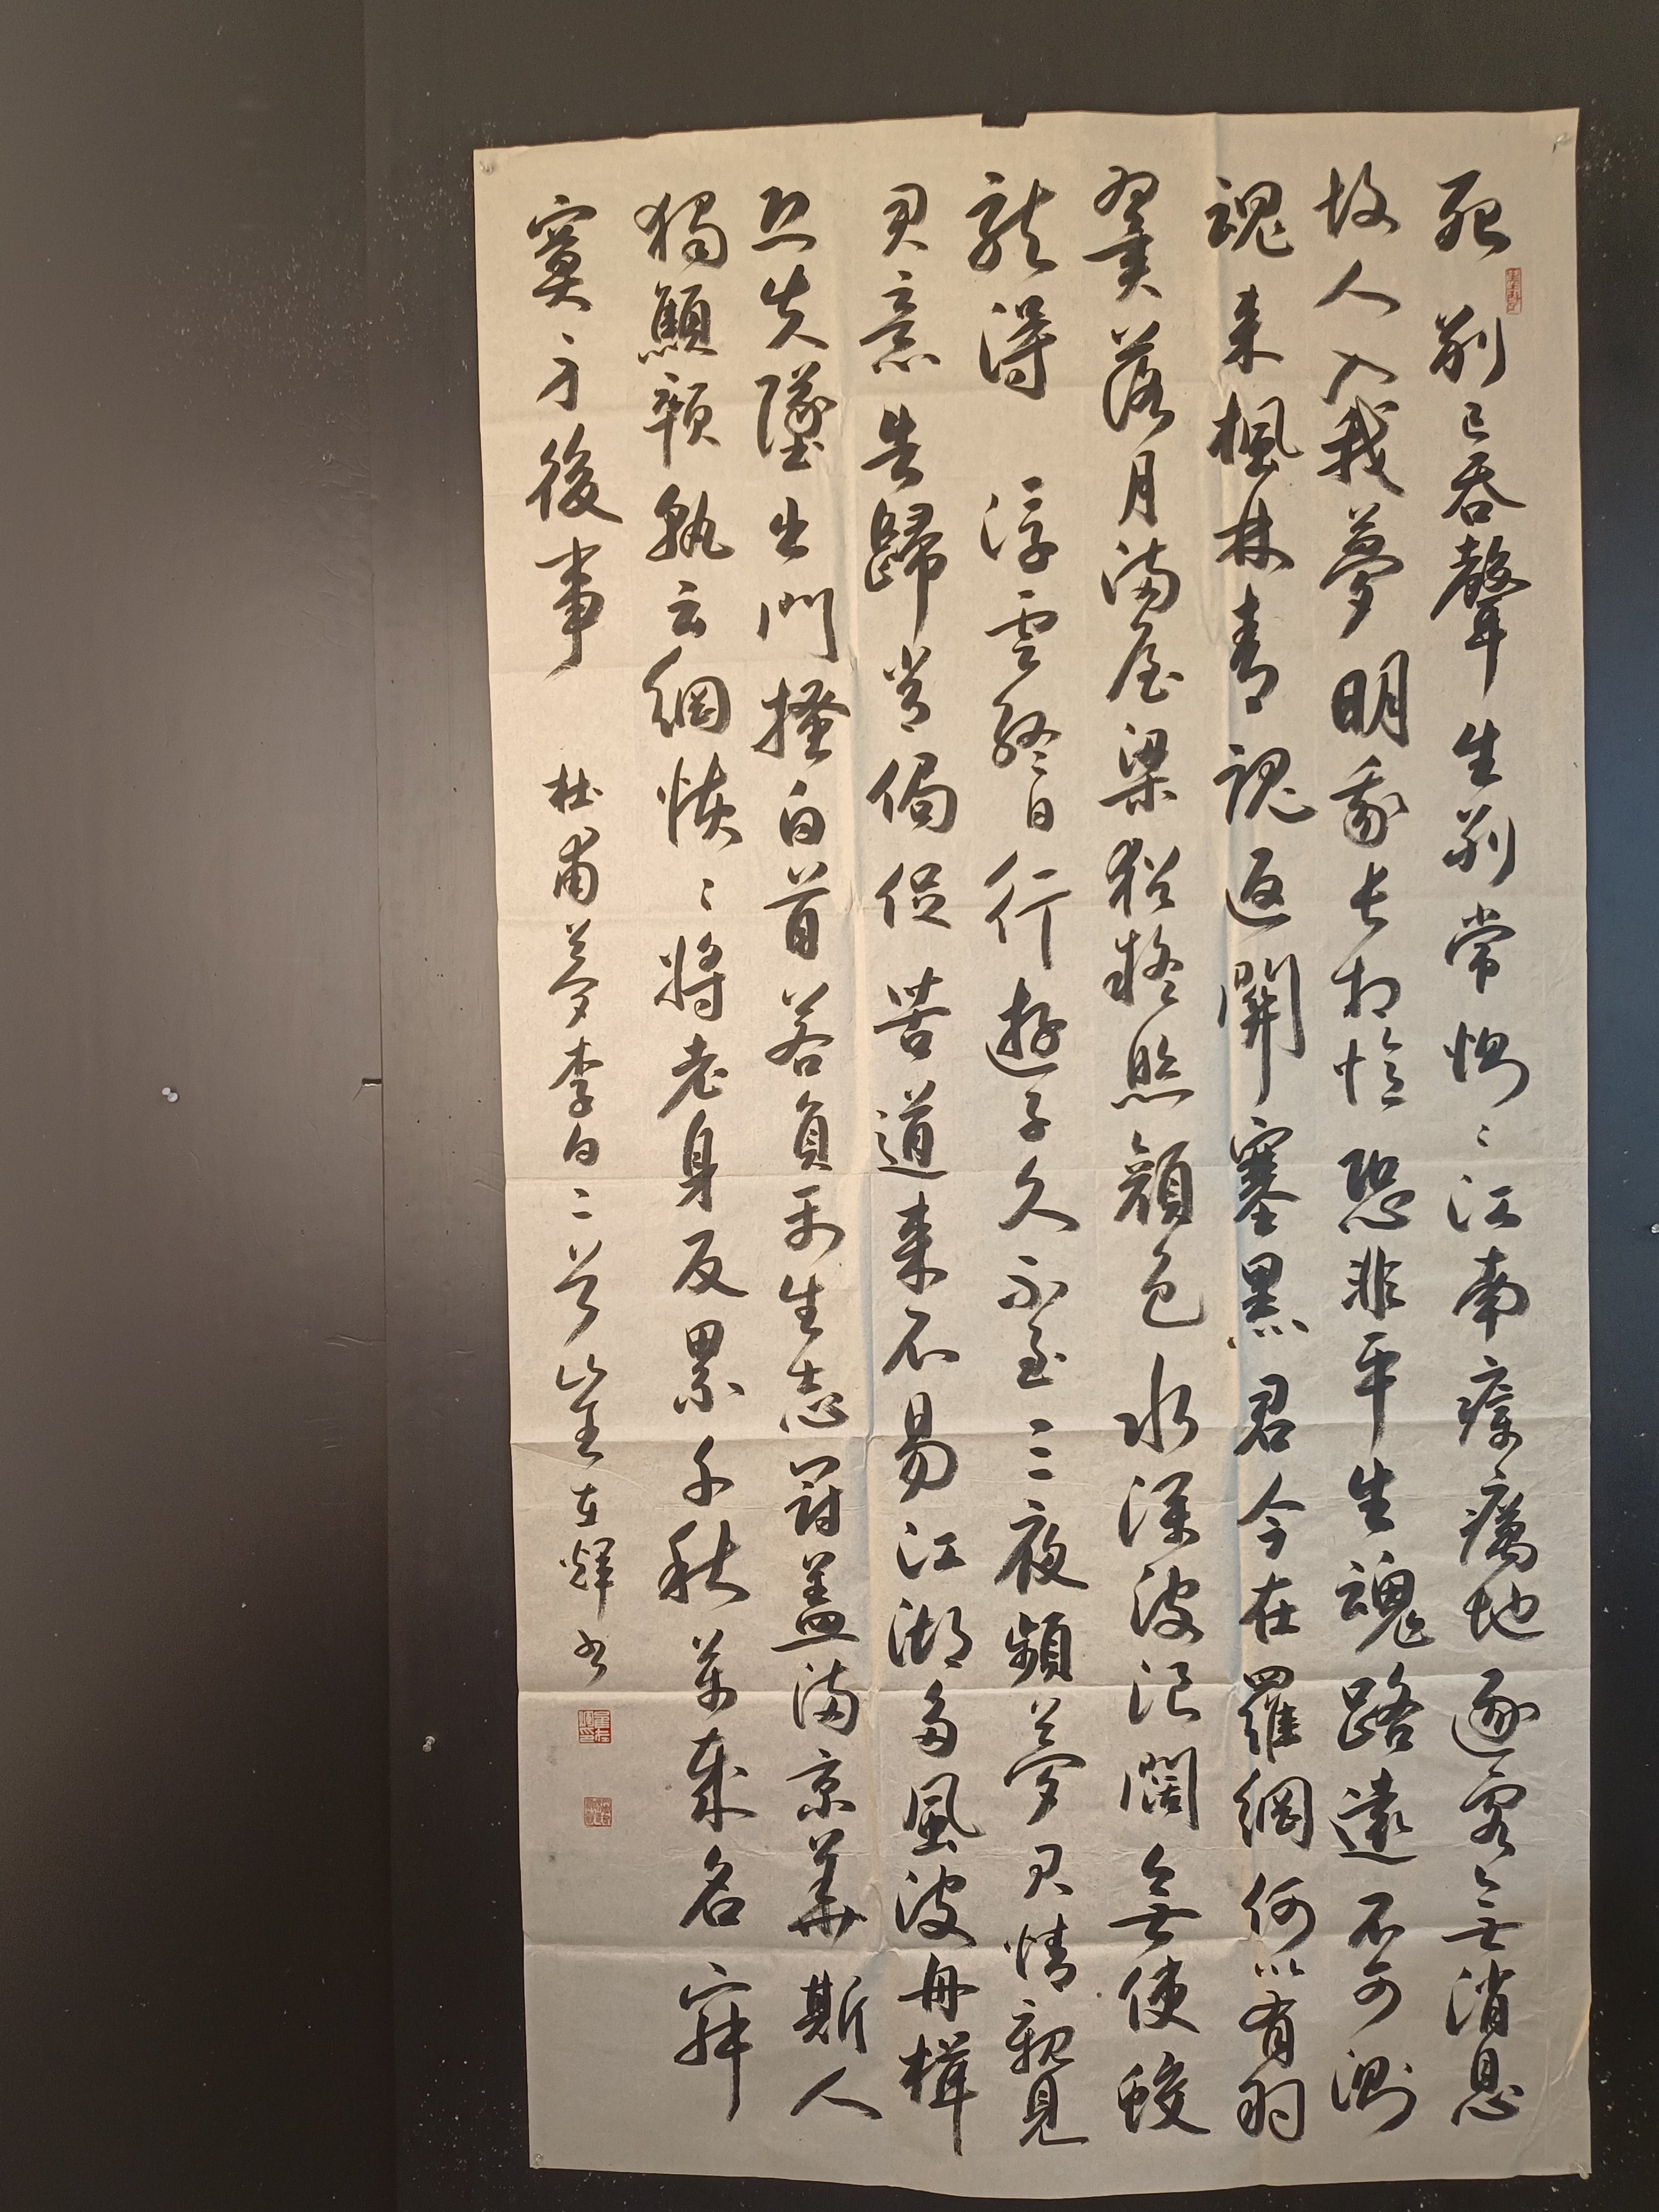 死別已吞聲生別常惻〻江南瘴癘地逐客無消息
故人入我夢明我長相憶恐非平生魂路遠不可測
魂來楓林青魂返關塞黑君今在羅網何以有羽
翼落月滿屋梁猶疑照顏色水深波浪闊無使蛟
龍得浮雲終日行遊子久不至三夜頻夢君情親見
君意告歸常侷促苦道來不易江湖多風波舟楫
恐失墜出門搔白首若負平生志冠蓋滿京華斯人
獨顦顇孰云網恢〻將老身反累千秋萬歲名寂
寞身後事
杜甫夢李白二首 在輝書